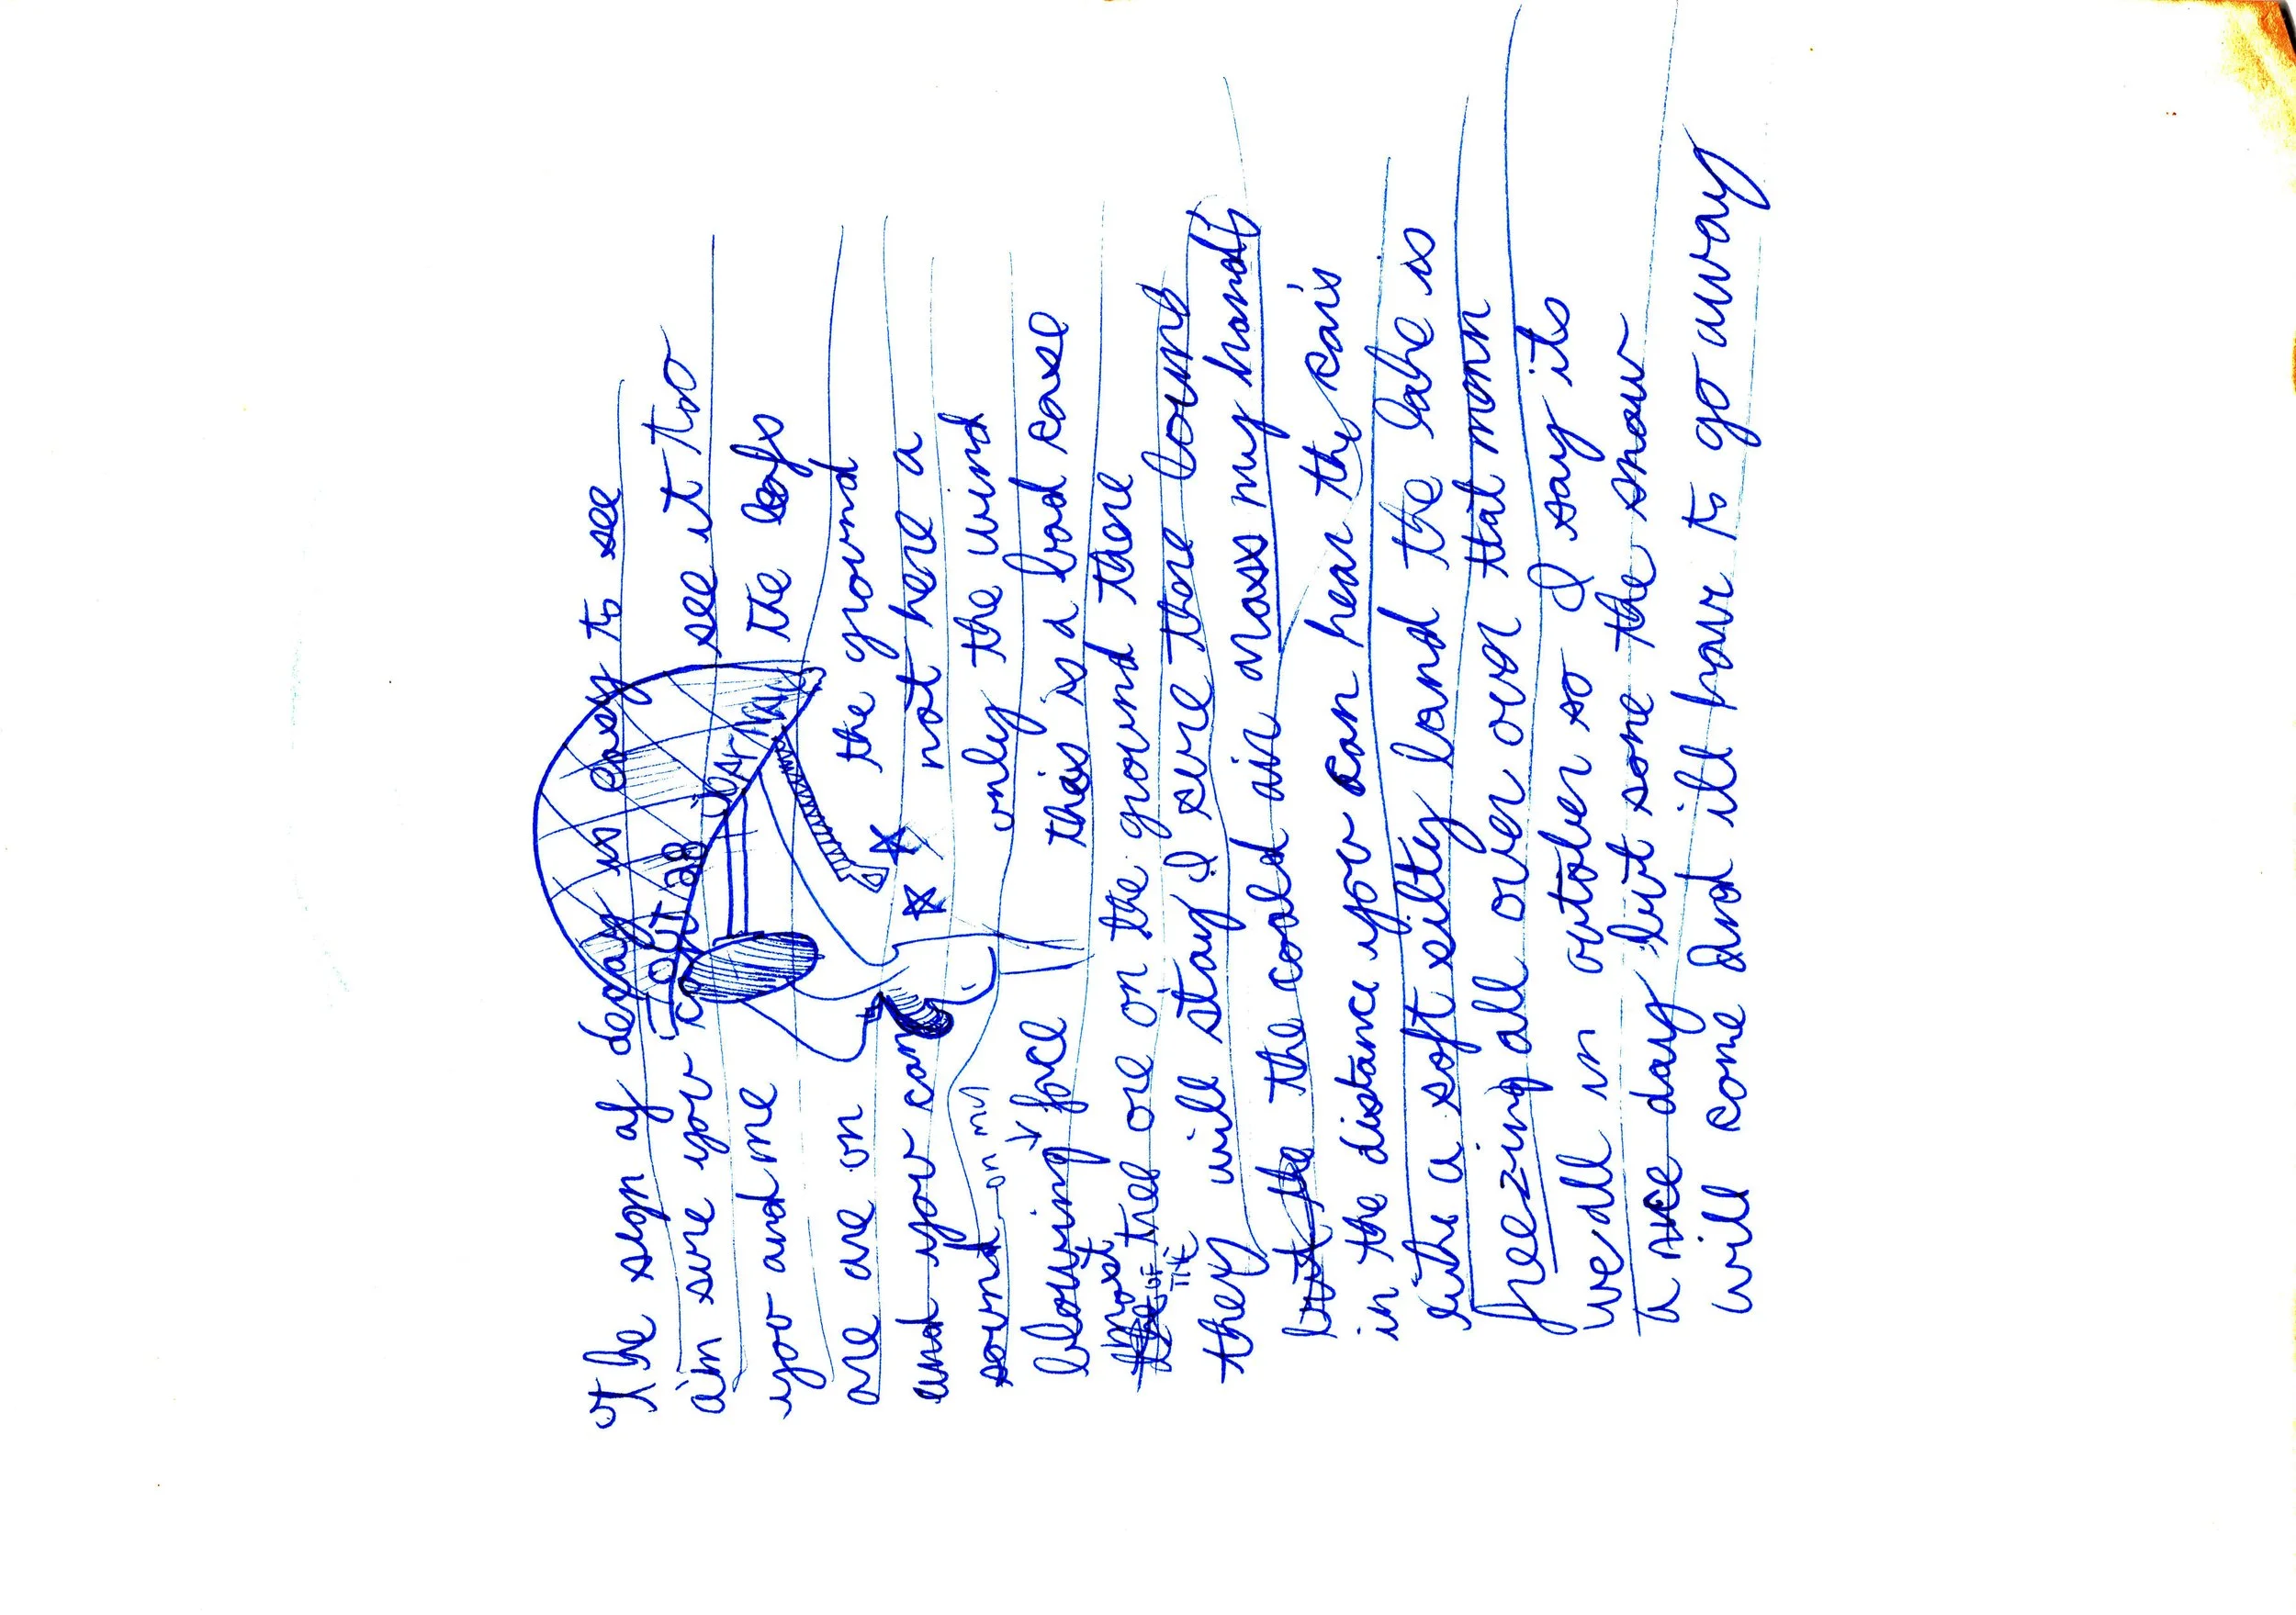 The sign of decay is easy to see
aim sure you can see it too
you and me the leafs
are are on the ground
and you can not here a
sound only the wind
on my
blowing face this is a bad case
most
of the tree are on the ground there
they will stay I sure there bound
but the the coald air mass my hands
in the distance you can hear the cars
a soft silty land the lake is
freezing all over even that
we all in october so I say its
a nice day but some the snow
will come and ill have to go away
OCT 28